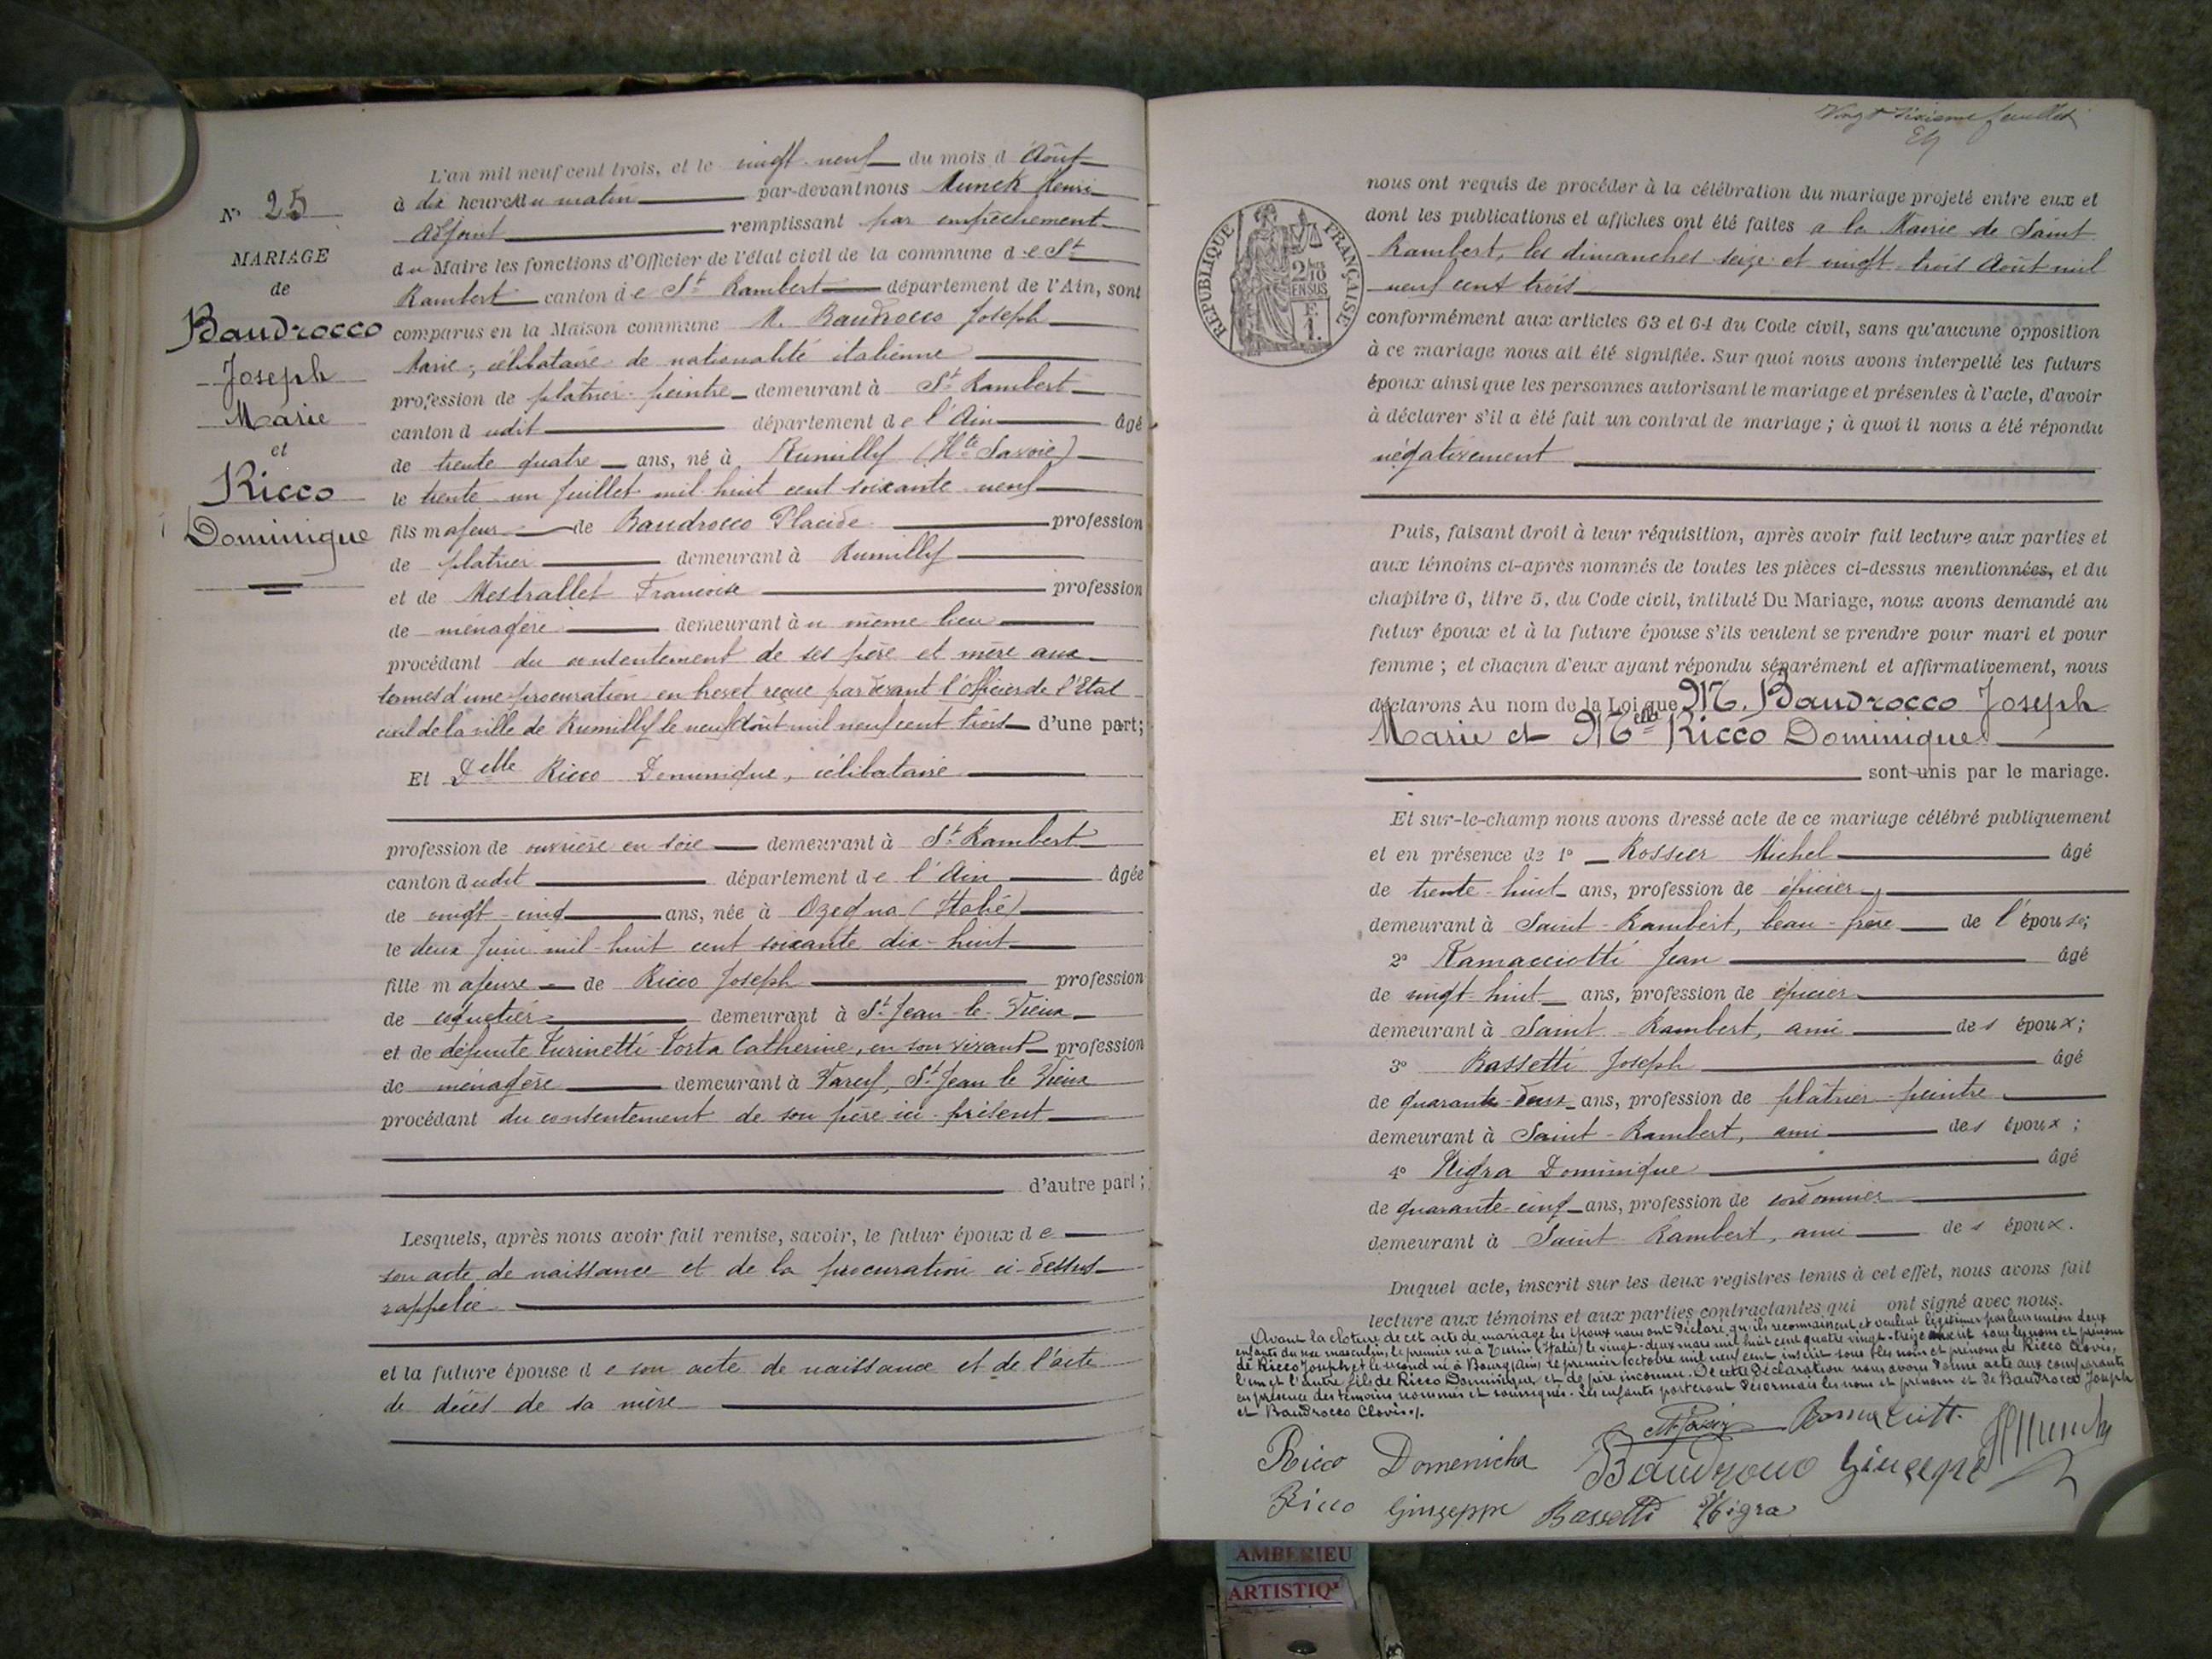 N° 25
MARIAGE
de
Baudrocco
Joseph
Marie
et
Ricco
Dominique
L'an mil neuf cent trois, et le vingt-neuf du mois d'Août
à dix heures du matin par-devant nous Munck Henri
adjoint remplissant par empêchement
du Maire les fonctions d'Officier de l'état civil de la commune de St
Rambert canton de St Rambert département de l'Ain, sont
comparus en la Maison commune M. Baudrocco Joseph
Marie, célibataire de nationalité italienne
profession de plâtrier-peintre demeurant à St Rambert
canton dudit département de l'Ain âgé
de trente quatre ans, né à Rumilly (Hte Savoie)
le trente un Juillet mil huit cent soixante neuf
fils majeur de Baudrocco Placide profession
de platrier demeurant à Rumilly
et de Mestrallet Francoise profession
de menagère demeurant à u même lieu
procédant du consentement de ses père et mère aux
termes d'une procuration en brevet reçue par devant l'officier de l'Etat
civil de la ville de Rumilly le neuf Août mil neuf cent trois d'une part;
Et Delle Ricco Dominique, célibataire
profession de ouvrière en soie demeurant à St Rambert
canton dudit département de l'Ain âgée
de vingt-cinq ans, née à Ozegna (Italie)
le deux Juin mil-huit cent soixante dix-huit
fille majeure de Ricco Joseph profession
de coquetier demeurant à St Jean-le-Vieux
et de défunte Turinetti-Costa Catherine, en son vivant profession
de ménagère demeurant à Varey, St Jean le Vieux
procédant du consentement de son père ici-présent
d'autre part;
Lesquels, après nous avoir fait remise, savoir, le futur époux de
son acte de naissance et de la procuration ci-dessus
rappelée
et la future épouse de son acte de naissance et de l'acte
de décès de sa mère
Vingt sixième feuillet
RÉPUBLIQUE FRANÇAISE
2/10
EN SUS
F.
1.
nous ont requis de procéder à la célébration du mariage projeté entre eux et
dont les publications et affiches ont été faites a la Mairie de Saint
Rambert, les dimanches seize et vingt-trois Août mil
neuf cent trois
conformément aux articles 63 et 64 du Code civil, sans qu'aucune opposition
à ce mariage nous ait été signifiée. Sur quoi nous avons interpellé les futurs
époux ainsi que les personnes autorisant le mariage et présentes à l'acte, d'avoir
à déclarer s'il a été fait un contrat de mariage; à quoi il nous a été répondu
négativement
Puis, faisant droit à leur réquisition, après avoir fait lecture aux parties et
aux témoins ci-après nommés de toutes les pièces ci-dessus mentionnées, et du
chapitre 6, titre 5, du Code civil, intitulé Du Mariage, nous avons demandé au
futur époux et à la future épouse s'ils veulent se prendre pour mari et pour
femme; et chacun d'eux ayant répondu séparément et affirmativement, nous
déclarons Au nom de la Loi que M. Baudrocco Joseph
Marie et Melle Ricco Dominique
sont unis par le mariage.
Et sur-le-champ nous avons dressé acte de ce mariage célébré publiquement
et en présence de 1° Rossier Michel âgé
de trente-huit ans, profession de épicier
demeurant à Saint-Rambert, beau-frère de l'épouse;
2° Ramacciotti Jean âgé
de vingt-huit ans, profession de épicier
demeurant à Saint-Rambert, ami des époux;
3° Bassetti Joseph âgé
de quarante-deux ans, profession de plâtrier-peintre
demeurant à Saint-Rambert, ami des époux;
4° Nigra Dominique âgé
de quarante-cinq ans, profession de cordonnier
demeurant à Saint Rambert, ami des époux.
Duquel acte, inscrit sur les deux registres tenus à cet effet, nous avons fait
lecture aux témoins et aux parties contractantes qui ont signé avec nous.
Avant la cloture de cet acte de mariage les époux nous ont déclaré qu'ils reconnaissent et veulent légitimer par leur union deux
enfants du sexe masculin, le premier né à Turin (Italie) le vingt-deux mars mil huit cent quatre vingt-treize inscrit sous les nom et prénom
de Ricco Joseph et le second né à Bourg (Ain) le premier octobre mil neuf cent inscrit sous les nom et prénom de Ricco Clovis,
l'un et l'autre fils de Ricco Dominique et de père inconnu. De cette déclaration nous avons donné acte aux comparants
en présence des témoins nommés et soussignés. Les enfants porteront désormais les nom et prénom de Baudrocco Joseph
et Baudrocco Clovis.
Ramaciotti HMunck
Ricco Domenicha Baudrocco Giuseppe
Ricco Giuseppe Bassetti Nigra
AMBERIEU
ARTISTIQ